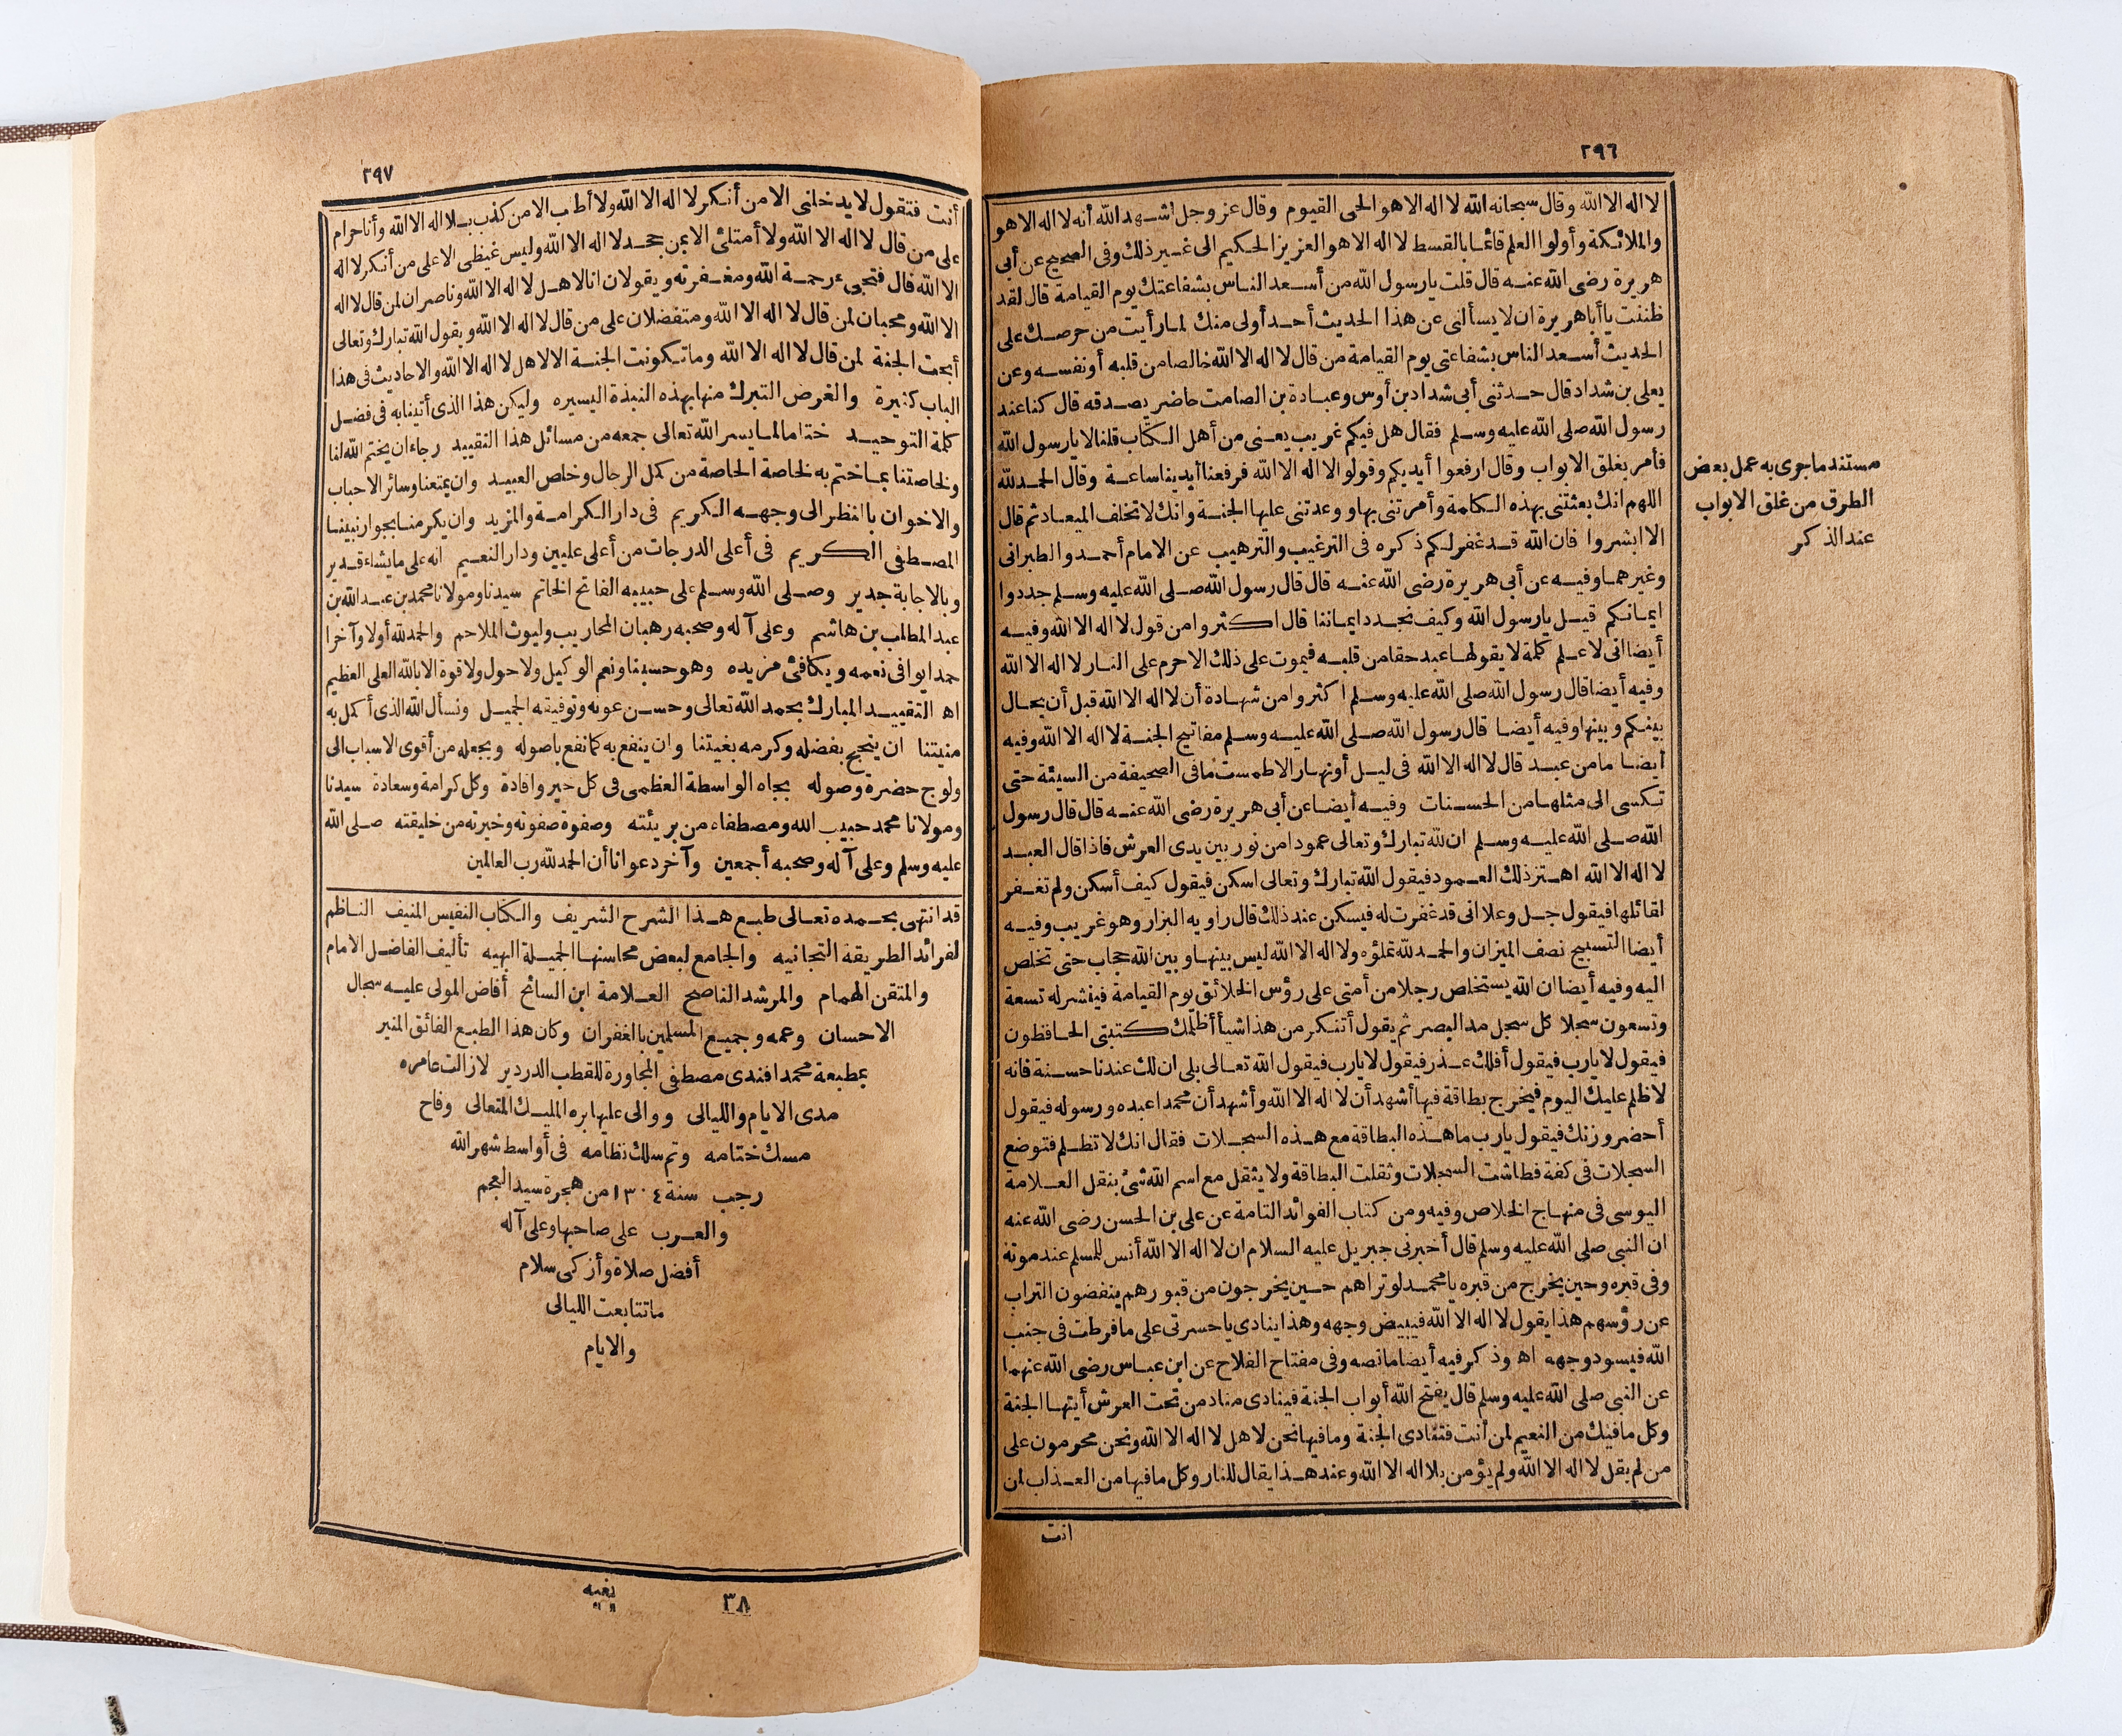 ٢٩٦
لا اله الا الله وقال سبحانه الله لا اله الا هو الحى القيوم وقال عز وجل شهد الله أنه لا اله الا هو
والملائكة وأولوا العلم قائما بالقسط لا اله الا هو العزيز الحكيم الى غير ذلك وفى الصحيح عن أبى
هريرة رضى الله عنه قال قلت يا رسول الله من أسعد الناس بشفاعتك يوم القيامة قال لقد
ظننت يا أبا هريرة ان لا يسألنى عن هذا الحديث أحد أولى منك لما رأيت من حرصك على
الحديث أسعد الناس بشفاعتى يوم القيامة من قال لا اله الا الله خالصا من قلبه أو نفسه وعن
يعلى بن شداد قال حدثنى أبى شداد بن أوس وعبادة بن الصامت حاضر يصدقه قال كنا عند
رسول الله صلى الله عليه وسلم فقال هل فيكم غريب يعنى من أهل الكتاب قلنا لا يا رسول الله
فأمر بغلق الابواب وقال ارفعوا أيديكم وقولوا لا اله الا الله فرفعنا أيدينا ساعة وقال الحمد لله
اللهم انك بعثتنى بهذه الكلمة وأمرتنى بها ووعدتنى عليها الجنة وانك لا تخلف الميعاد ثم قال
الا ابشروا فان الله قد غفر لكم ذكره فى الترغيب والترهيب عن الامام أحمد والطبرانى
وغيرهما وفيه عن أبى هريرة رضى الله عنه قال قال رسول الله صلى الله عليه وسلم جددوا
ايمانكم قيل يا رسول الله وكيف نجدد ايماننا قال اكثروا من قول لا اله الا الله وفيه
أيضا انى لا علم كلمة لا يقولها عبد حقا من قلبه فيموت على ذلك الا حرم على النار لا اله الا الله
وفيه أيضا قال رسول الله صلى الله عليه وسلم اكثروا من شهادة أن لا اله الا الله قبل أن يحال
بينكم وبينها وفيه أيضا قال رسول الله صلى الله عليه وسلم مفاتيح الجنة لا اله الا الله وفيه
أيضا ما من عبد قال لا اله الا الله فى ليل أو نهار الا طمست ما فى الصحيفة من السيئة حتى
تكسى الى مثلها من الحسنات وفيه أيضا عن أبى هريرة رضى الله عنه قال قال رسول
الله صلى الله عليه وسلم ان لله تبارك وتعالى عمودا من نور بين يدى العرش فاذا قال العبد
لا اله الا الله اهتز ذلك العمود فيقول الله تبارك وتعالى اسكن فيقول كيف أسكن ولم تغفر
لقائلها فيقول جل وعلا انى قد غفرت له فيسكن عند ذلك قال راويه البزار وهو غريب وفيه
أيضا التسبيح نصف الميزان والحمد لله تملؤه ولا اله الا الله ليس بينها وبين الله حجاب حتى تخلص
اليه وفيه أيضا ان الله يستخلص رجلا من أمتى على رؤس الخلائق يوم القيامة فينشر له تسعة
وتسعون سجلا كل سجل مد البصر ثم يقول أتنكر من هذا شيأ أظلمك كتبتى الحافظون
فيقول لا يارب فيقول أفلك عذر فيقول لا يارب فيقول الله تعالى بلى ان لك عندنا حسنة فانه
لا ظلم عليك اليوم فيخرج بطاقة فيها أشهد أن لا اله الا الله وأشهد أن محمدا عبده ورسوله فيقول
أحضر وزنك فيقول يارب ما هذه البطاقة مع هذه السجلات فقال انك لا تظلم فتوضع
السجلات فى كفة فطاشت السجلات وثقلت البطاقة ولا يثقل مع اسم الله شئ بنقل العلامة
اليوسى فى منهاج الخلاص وفيه ومن كتاب الفوائد التامة عن على بن الحسن رضى الله عنه
ان النبى صلى الله عليه وسلم قال أخبرنى جبريل عليه السلام ان لا اله الا الله أنس للمسلم عند موته
وفى قبره وحين يخرج من قبره يا محمد لو تراهم حين يخرجون من قبورهم ينفضون التراب
عن رؤسهم هذا يقول لا اله الا الله فيبيض وجهه وهذا ينادى يا حسرتى على ما فرطت فى جنب
الله فيسود وجهه اه وذكر فيه أيضا ما نصه وفى مفتاح الفلاح عن ابن عباس رضى الله عنهما
عن النبى صلى الله عليه وسلم قال يفتح الله أبواب الجنة فينادى مناد من تحت العرش أيتها الجنة
وكل ما فيك من النعيم لمن أنت فتنادى الجنة وما فيها نحن لاهل لا اله الا الله ونحن محرمون على
من لم يقل لا اله الا الله ولم يؤمن بلا اله الا الله وعند هذا يقال للنار وكل ما فيها من العذاب لمن
انت
مستند ما جرى به عمل بعض
الطرق من غلق الابواب
عند الذكر
٢٩٧
أنت فتقول لا يدخلنى الا من أنكر لا اله الا الله ولا أطلب الا من كذب بلا اله الا الله وأنا حرام
على من قال لا اله الا الله ولا أمتلئ الا بمن جحد لا اله الا الله وليس غيظى الا على من أنكر لا اله
الا الله قال فتجىء رحمة الله ومغفرته ويقولان انا لاهل لا اله الا الله وناصران لمن قال لا اله
الا الله ومحبان لمن قال لا اله الا الله ومتفضلان على من قال لا اله الا الله ويقول الله تبارك وتعالى
أبحت الجنة لمن قال لا اله الا الله وما تكونت الجنة الا لاهل لا اله الا الله والاحاديث فى هذا
الباب كثيرة والغرض التبرك منها بهذه النبذة اليسيره وليكن هذا الذى أتينا به فى فضل
كلمة التوحيد ختاما لما يسر الله تعالى جمعه من مسائل هذا التقييد رجاء ان يختم الله لنا
ولخاصتنا بما ختم به لخاصة الخاصة من كمل الرجال وخلص العبيد وان يمتعنا وسائر الاحباب
والاخوان بالنظر الى وجهه الكريم فى دار الكرامة والمزيد وان يكرمنا بجوار نبينا
المصطفى الكريم فى أعلى الدرجات من أعلى عليين ودار النعيم انه على ما يشاء قدير
وبالاجابة جدير وصلى الله وسلم على حبيبه الفاتح الخاتم سيدنا ومولانا محمد بن عبد الله بن
عبد المطلب بن هاشم وعلى آله وصحبه رهبان المحاريب وليوث الملاحم والحمد لله أولا وآخرا
حمدا يوافى نعمه ويكافئ مزيده وهو حسبنا ونعم الوكيل ولا حول ولا قوة الا بالله العلى العظيم
اه التقييد المبارك بحمد الله تعالى وحسن عونه وتوفيقه الجميل ونسأل الله الذى أكمل به
منيتنا ان ينجح بفضله وكرمه بغيتنا وان ينفع به كما نفع باصوله ويجعله من أقوى الاسباب الى
ولوج حضرة وصوله بجاه الواسطة العظمى فى كل خير وافادة وكل كرامة وسعادة سيدنا
ومولانا محمد حبيب الله ومصطفاه من بريئته وصفوة صفوته وخيرته من خليقته صلى الله
عليه وسلم وعلى آله وصحبه أجمعين وآخر دعوانا أن الحمد لله رب العالمين
قد انتهى بحمده تعالى طبع هذا الشرح الشريف والكتاب النفيس المنيف الناظم
لفرائد الطريقة التجانيه والجامع لبعض محاسنها الجميلة البهيه تأليف الفاضل الامام
والمتقن الهمام والمرشد الناصح العلامة ابن السائح أفاض المولى عليه سجال
الاحسان وعمه وجميع المسلمين بالغفران وكان هذا الطبع الفائق المنير
بمطبعة محمد افندى مصطفى المجاورة للقطب الدردير لازالت عامره
مدى الايام والليالى ووالى عليها بره المليك المتعالى وفاح
مسك ختامه وتم سلك نظامه فى أواسط شهر الله
رجب سنة ١٣٠٤ من هجرة سيد العجم
والعرب على صاحبها وعلى آله
أفضل صلاة وأزكى سلام
ما تتابعت الليالى
والايام
٣٨
بغيه